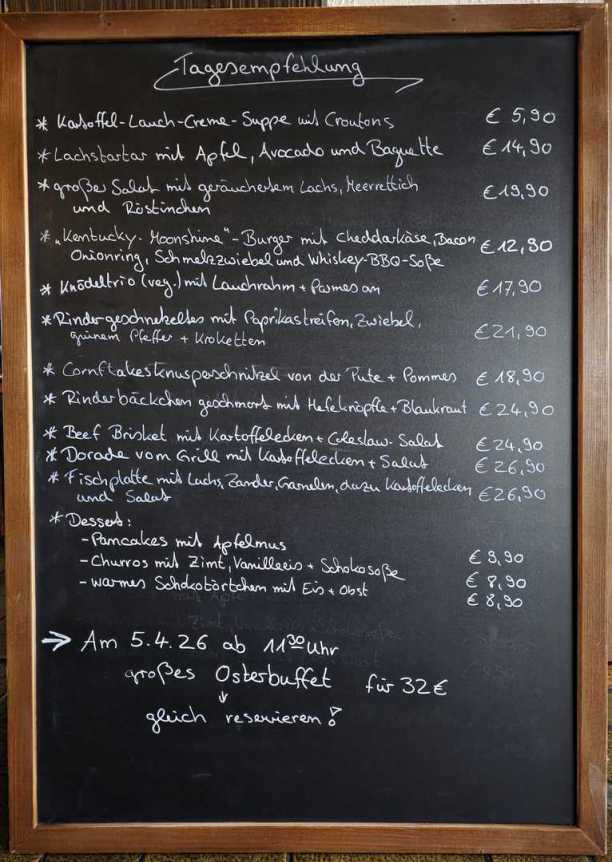 Tagesempfehlung
* Kartoffel-Lauch-Creme-Suppe mit Croutons € 5,90
* Lachstartar mit Apfel, Avocado und Baguette € 14,90
* großer Salat mit geräuchertem Lachs, Meerrettich € 19,90
und Röstinchen
* „Kentucky-Moonshine"-Burger mit Cheddarkäse, Bacon € 12,90
Onionring, Schmelzzwiebel und Whiskey-BBQ-Soße
* Knödeltrio (veg.) mit Lauchrahm + Parmesan € 17,90
* Rindergeschnetzeltes mit Paprikastreifen, Zwiebel, € 21,90
grünem Pfeffer + Kroketten
* Cornflakesknusperschnitzel von der Pute + Pommes € 18,90
* Rinderbäckchen geschmort mit Hefeknöpfle + Blaukraut € 24,90
* Beef Brisket mit Kartoffelecken + Coleslaw-Salat € 24,90
* Dorade vom Grill mit Kartoffelecken + Salat € 26,90
* Fischplatte mit Lachs, Zander, Garnelen, dazu Kartoffelecken € 26,90
und Salat
* Dessert:
- Pancakes mit Apfelmus € 9,90
- Churros mit Zimt, Vanilleeis + Schokosoße € 8,90
- warmes Schokotörtchen mit Eis + Obst € 8,90
→ Am 5.4.26 ab 11 30 Uhr
großes Osterbuffet für 32€
↓
gleich reservieren!